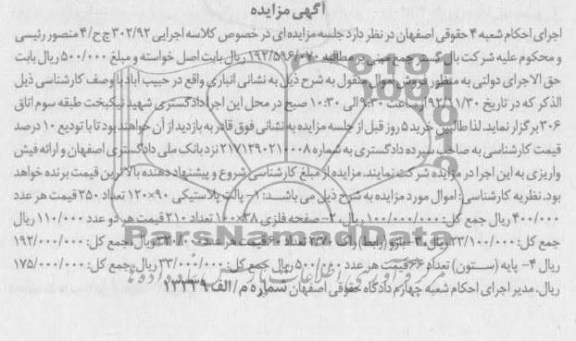 آگهی مزایده
اجرای احکام شعبه ۴ حقوقی اصفهان در نظر دارد جلسه مزایده ای در خصوص کلاسه اجرایی ۳۰۲/۹۲ ج ح/۴ منصور رئیسی
و محکوم علیه شرکت بال گستر مبنی بر مطالبه ریال بابت اصل خواسته و مبلغ ۵۰۰/۰۰۰ ریال بابت
حق الاجرای دولتی به منظور فروش اموال منقول به شرح ذیل به نشانی انباری واقع در حبیب آباد با وصف کارشناسی ذیل
الذکر که در تاریخ ۹۲/۱۱/۳۰ ساعت ۹:۳۰ الی ۱۰:۳۰ صبح در محل این اجرا دادگستری شهید نیکبخت طبقه سوم اتاق
۳۰۶ برگزار نماید. لذا طالبین خرید ۵ روز قبل از جلسه مزایده به نشانی فوق قادر به بازدید از آن خواهند بود تا با تودیع ۱۰ درصد
قیمت کارشناسی به حساب سپرده دادگستری به شماره ۲۱۷۱۲۹۰۲۱۰۰۰۸ نزد بانک ملی دادگستری اصفهان و ارائه فیش
واریزی به این اجرا در مزایده شرکت نمایند. مزایده از مبلغ کارشناسی شروع و پیشنهاد دهنده بالاترین قیمت برنده خواهد
بود. نظریه کارشناسی: اموال مورد مزایده به شرح ذیل می باشد: ۱- پالت پلاستیکی ۹۰×۱۲۰ تعداد ۲۵۰ قیمت هر عدد
۴۰۰/۰۰۰ ریال جمع کل: ۱۰۰/۰۰۰/۰۰۰ ریال ۲- صفحه فلزی ۳۸×۱۰۰ تعداد ۲۱۰ قیمت هر دو عدد ۱۱۰/۰۰۰ ریال
جمع کل: ۲۳/۱۰۰/۰۰۰ ریال ۳- بازو (رابط) راک تعداد قیمت هر عدد ریال جمع کل: ۱۹۲/۰۰۰/۰۰۰
ریال ۴- پایه (ستون) تعداد ۶۶ قیمت هر عدد ۵۰۰/۰۰۰ ریال جمع کل: ۳۳/۰۰۰/۰۰۰ ریال جمع کل: ۱۷۵/۰۰۰/۰۰۰
ریال. مدیر اجرای احکام شعبه چهارم دادگاه حقوقی اصفهان شماره م/الف ۱۳۳۳۹
ParsNamadData